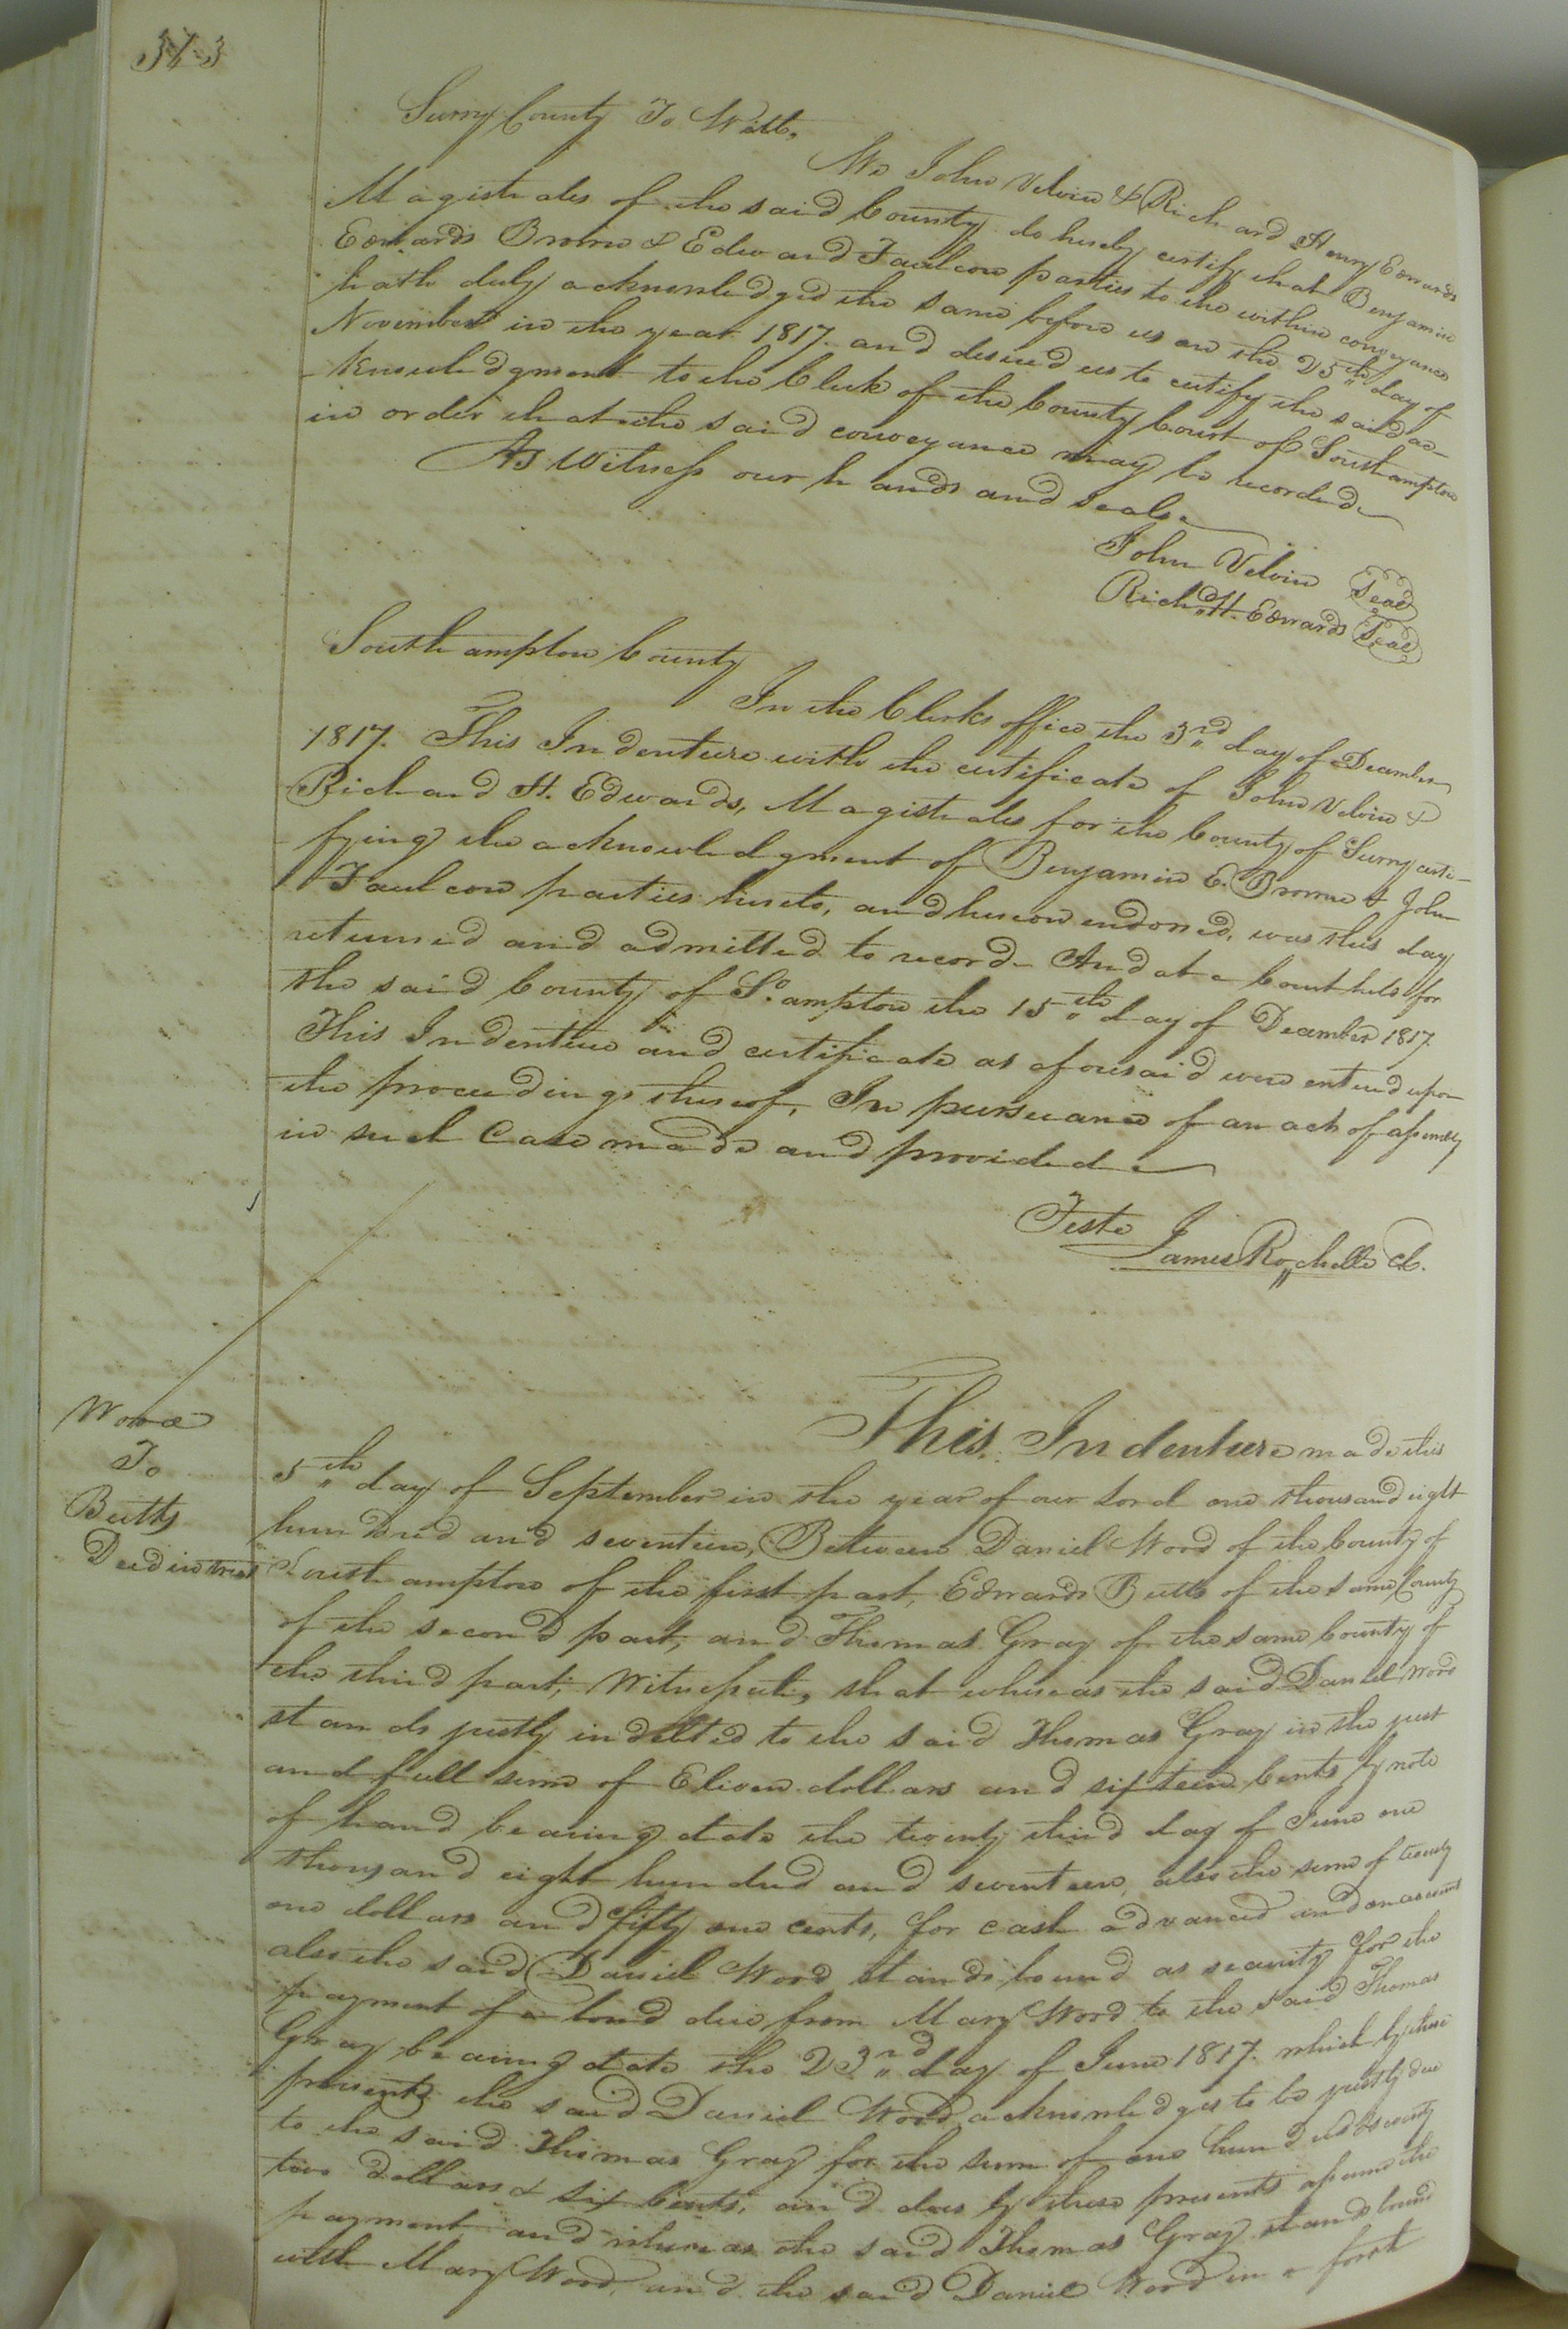 373
Surry County To Witt,
We John Velvin & Richard Henry Edwards
Magistrates of the said County do hereby certify that Benjamin
Edwards Browne & Edward Faulcon parties to the within conveyance
hath duly acknowledged the same before us on the 25th day of
November in the year 1817. and desired us to certify the said ac-
knowledgment to the Clerk of the County Court of Southampton
in order that the said conveyance may be recorded
As Witness our hands and seals
John Velvin Seal
Richd. H. Edwards Seal
Southampton County
In the Clerks office the 3rd day of December
1817. This Indenture with the certificate of John Velvin &
Richard H. Edwards, Magistrates for the County of Surry certi-
fying the acknowledgment of Benjamin E. Browne & John
Faulcon parties hereto, and hereon endorsed, was this day
returned and admitted to record And at a Court held for
the said County of So.ampton the 15th day of December 1817.
This Indenture and certificate as aforesaid were entered upon
the proceedings thereof, In pursuance of an act of assembly
in such Case made and provided
Teste
James Rochelle Cl.
Word
To
Butts
Deed in trust
This Indenture made this
5th day of September in the year of our Lord one thousand eight
hundred and seventeen, Between Daniel Word of the County of
Southampton of the first part, Edwards Butts of the same County
of the second part, and Thomas Gray of the same County of
the third part; Witnesseth, that whereas the said Daniel Word
stands justly indebted to the said Thomas Gray in the just
and full sum of Eleven dollars and sixteen Cents by note
of hand bearing date the twenty third day of June one
thousand eight hundred and seventeen, also the sum of twenty
one dollars and fifty one cents, for cash advanced and on account
also the said Daniel Word stands bound as security for the
payment of a bond due from Mary Word to the said Thomas
Gray bearing date the 23rd day of June 1817. which by these
presents the said Daniel Word acknowledges to be justly due
to the said Thomas Gray for the sum of one hundred & seventy
two dollars & six Cents, and does by these presents assume the
payment and whereas the said Thomas Gray stands bound
with Mary Word, and the said Daniel Word in a forth